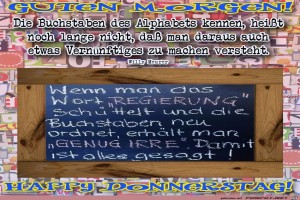 GUTEN MORGEN!
Die Buchstaben des Alphabets kennen, heißt
noch lange nicht, daß man daraus auch
etwas Vernünftiges zu machen versteht.
Willy Meurer
Wenn man das
Wort „REGIERUNG"
schüttelt und die
Buchstaben neu
ordnet, erhält man
„GENUG IRRE". Damit
ist alles gesagt!
HAPPY DONNERSTAG!